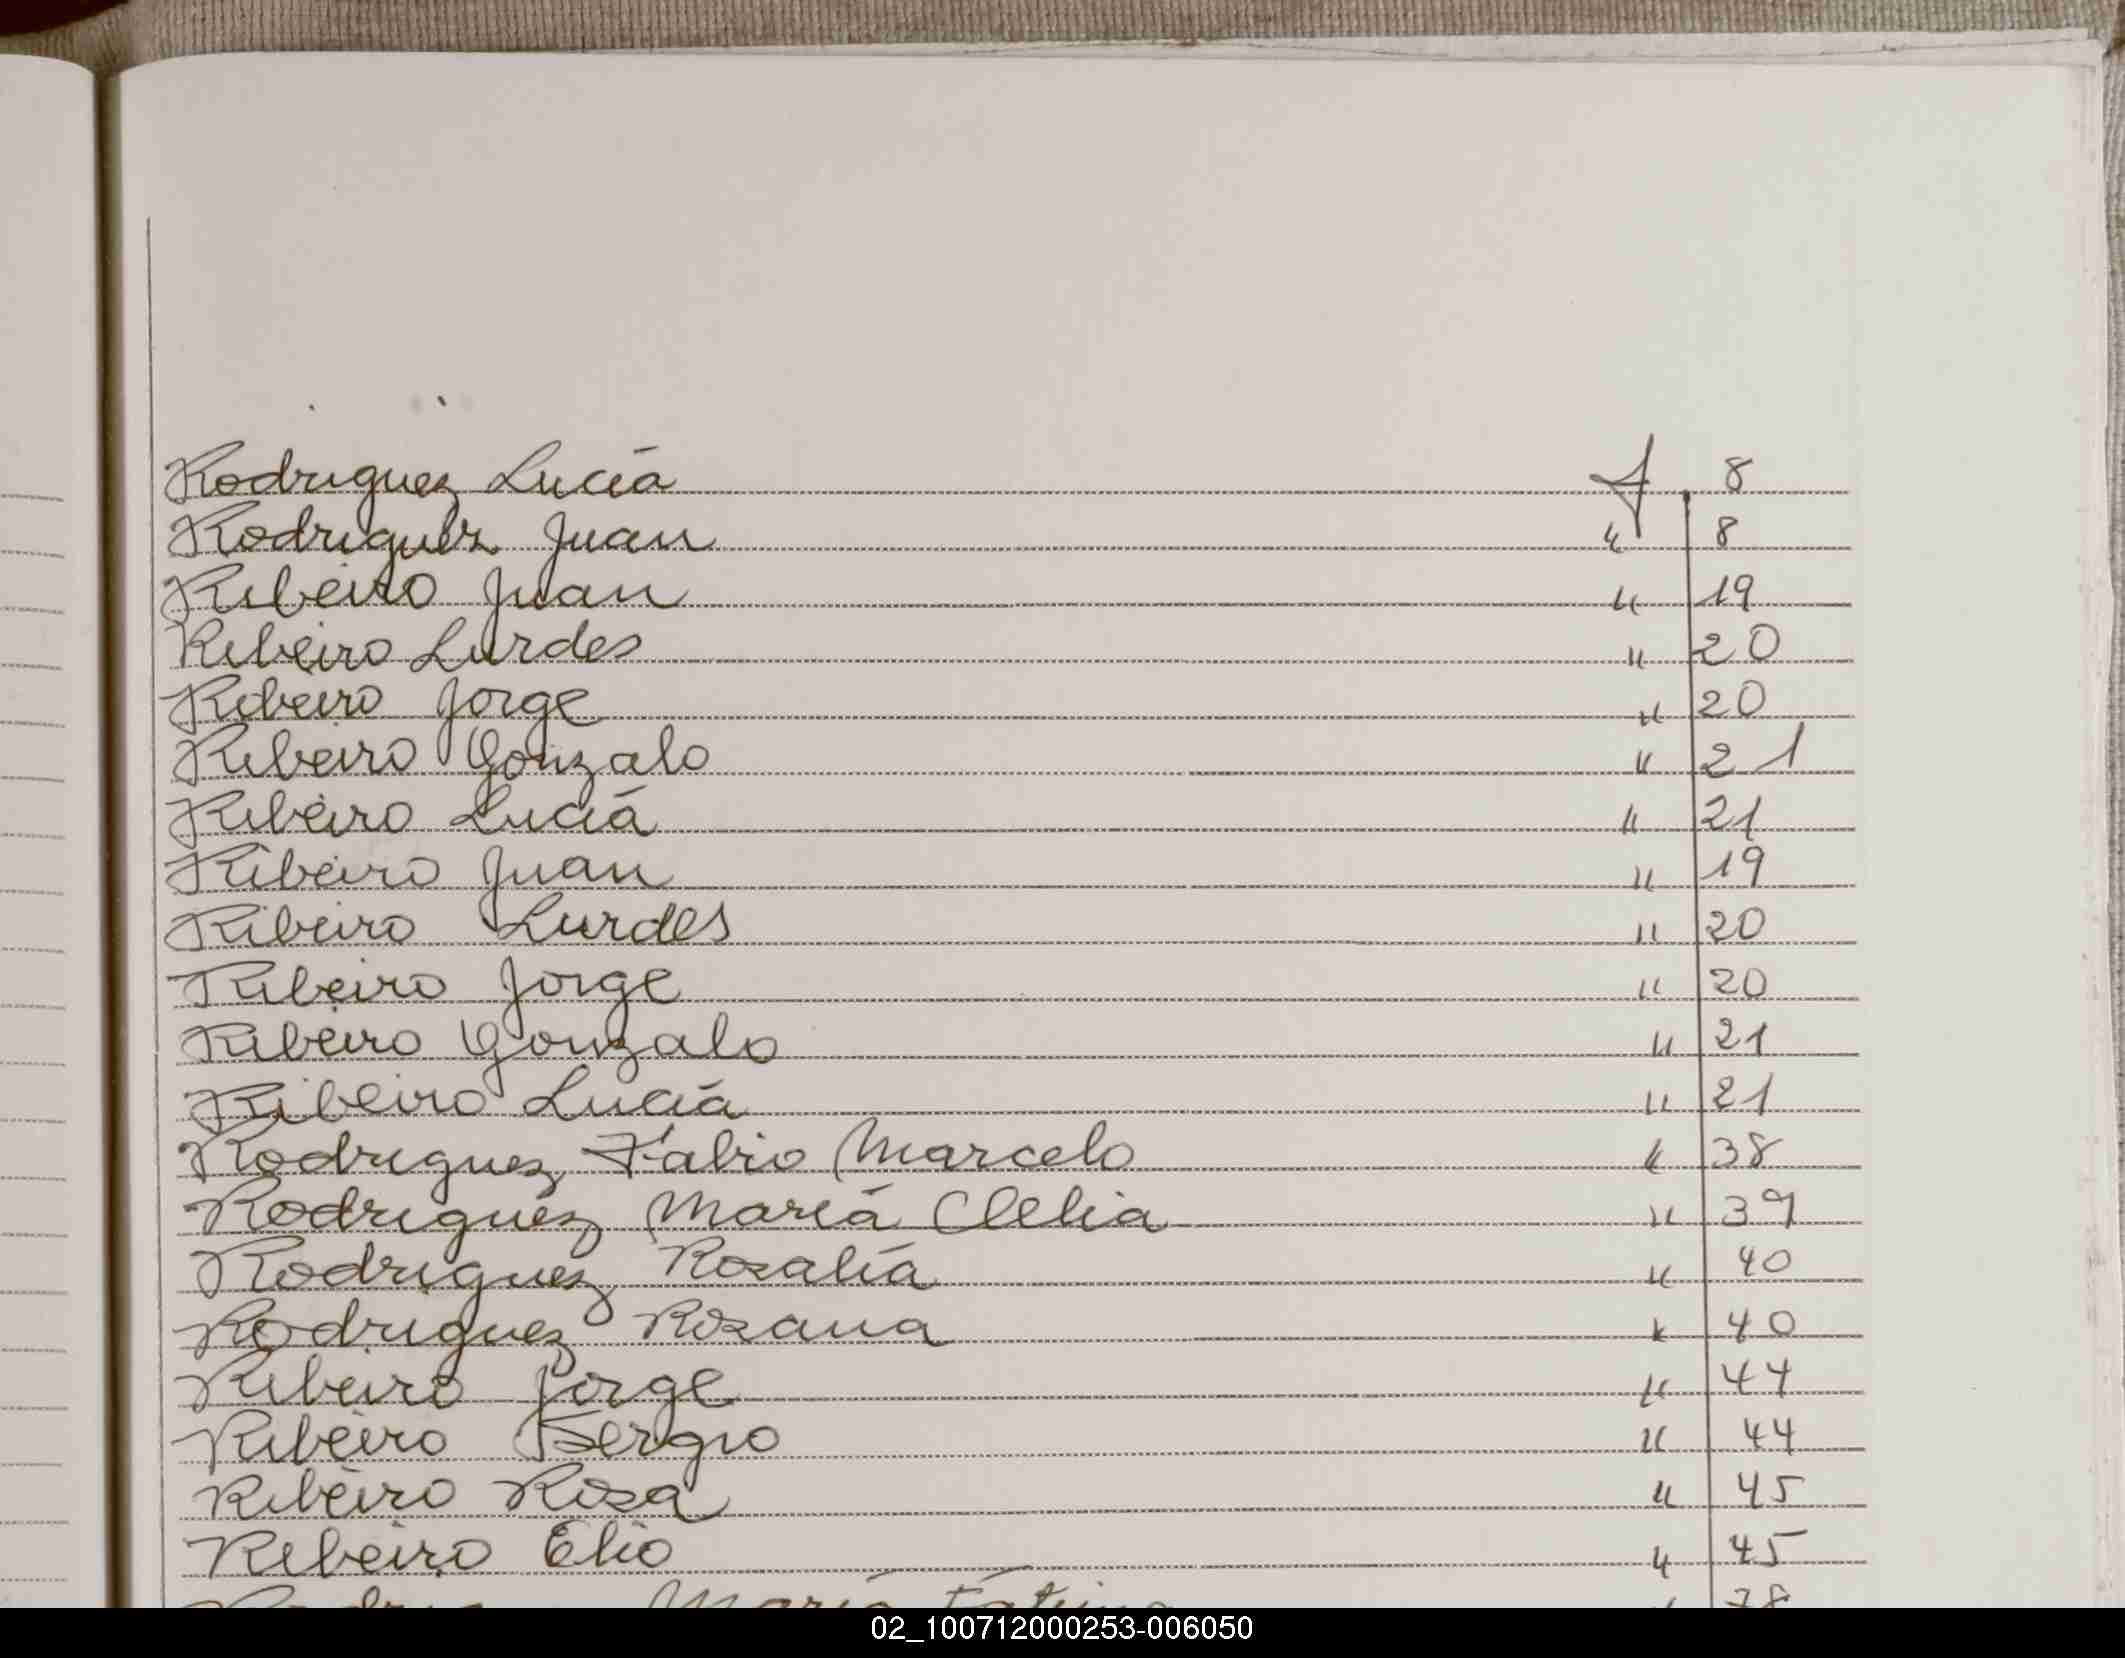 Rodriguez Lucía f 8
Rodriguez Juan " 8
Ribeiro Juan " 19
Ribeiro Lurdes " 20
Ribeiro Jorge " 20
Ribeiro Gonzalo " 21
Ribeiro Lucía " 21
Ribeiro Juan " 19
Ribeiro Lurdes " 20
Ribeiro Jorge " 20
Ribeiro Gonzalo " 21
Ribeiro Lucía " 21
Rodriguez Fabio Marcelo " 38
Rodriguez María Clelia " 39
Rodriguez Rosalía " 40
Rodriguez Rosana " 40
Ribeiro Jorge " 44
Ribeiro Sergio " 44
Ribeiro Rosa " 45
Ribeiro Elio " 45
María Fátima " 78
02_100712000253-006050